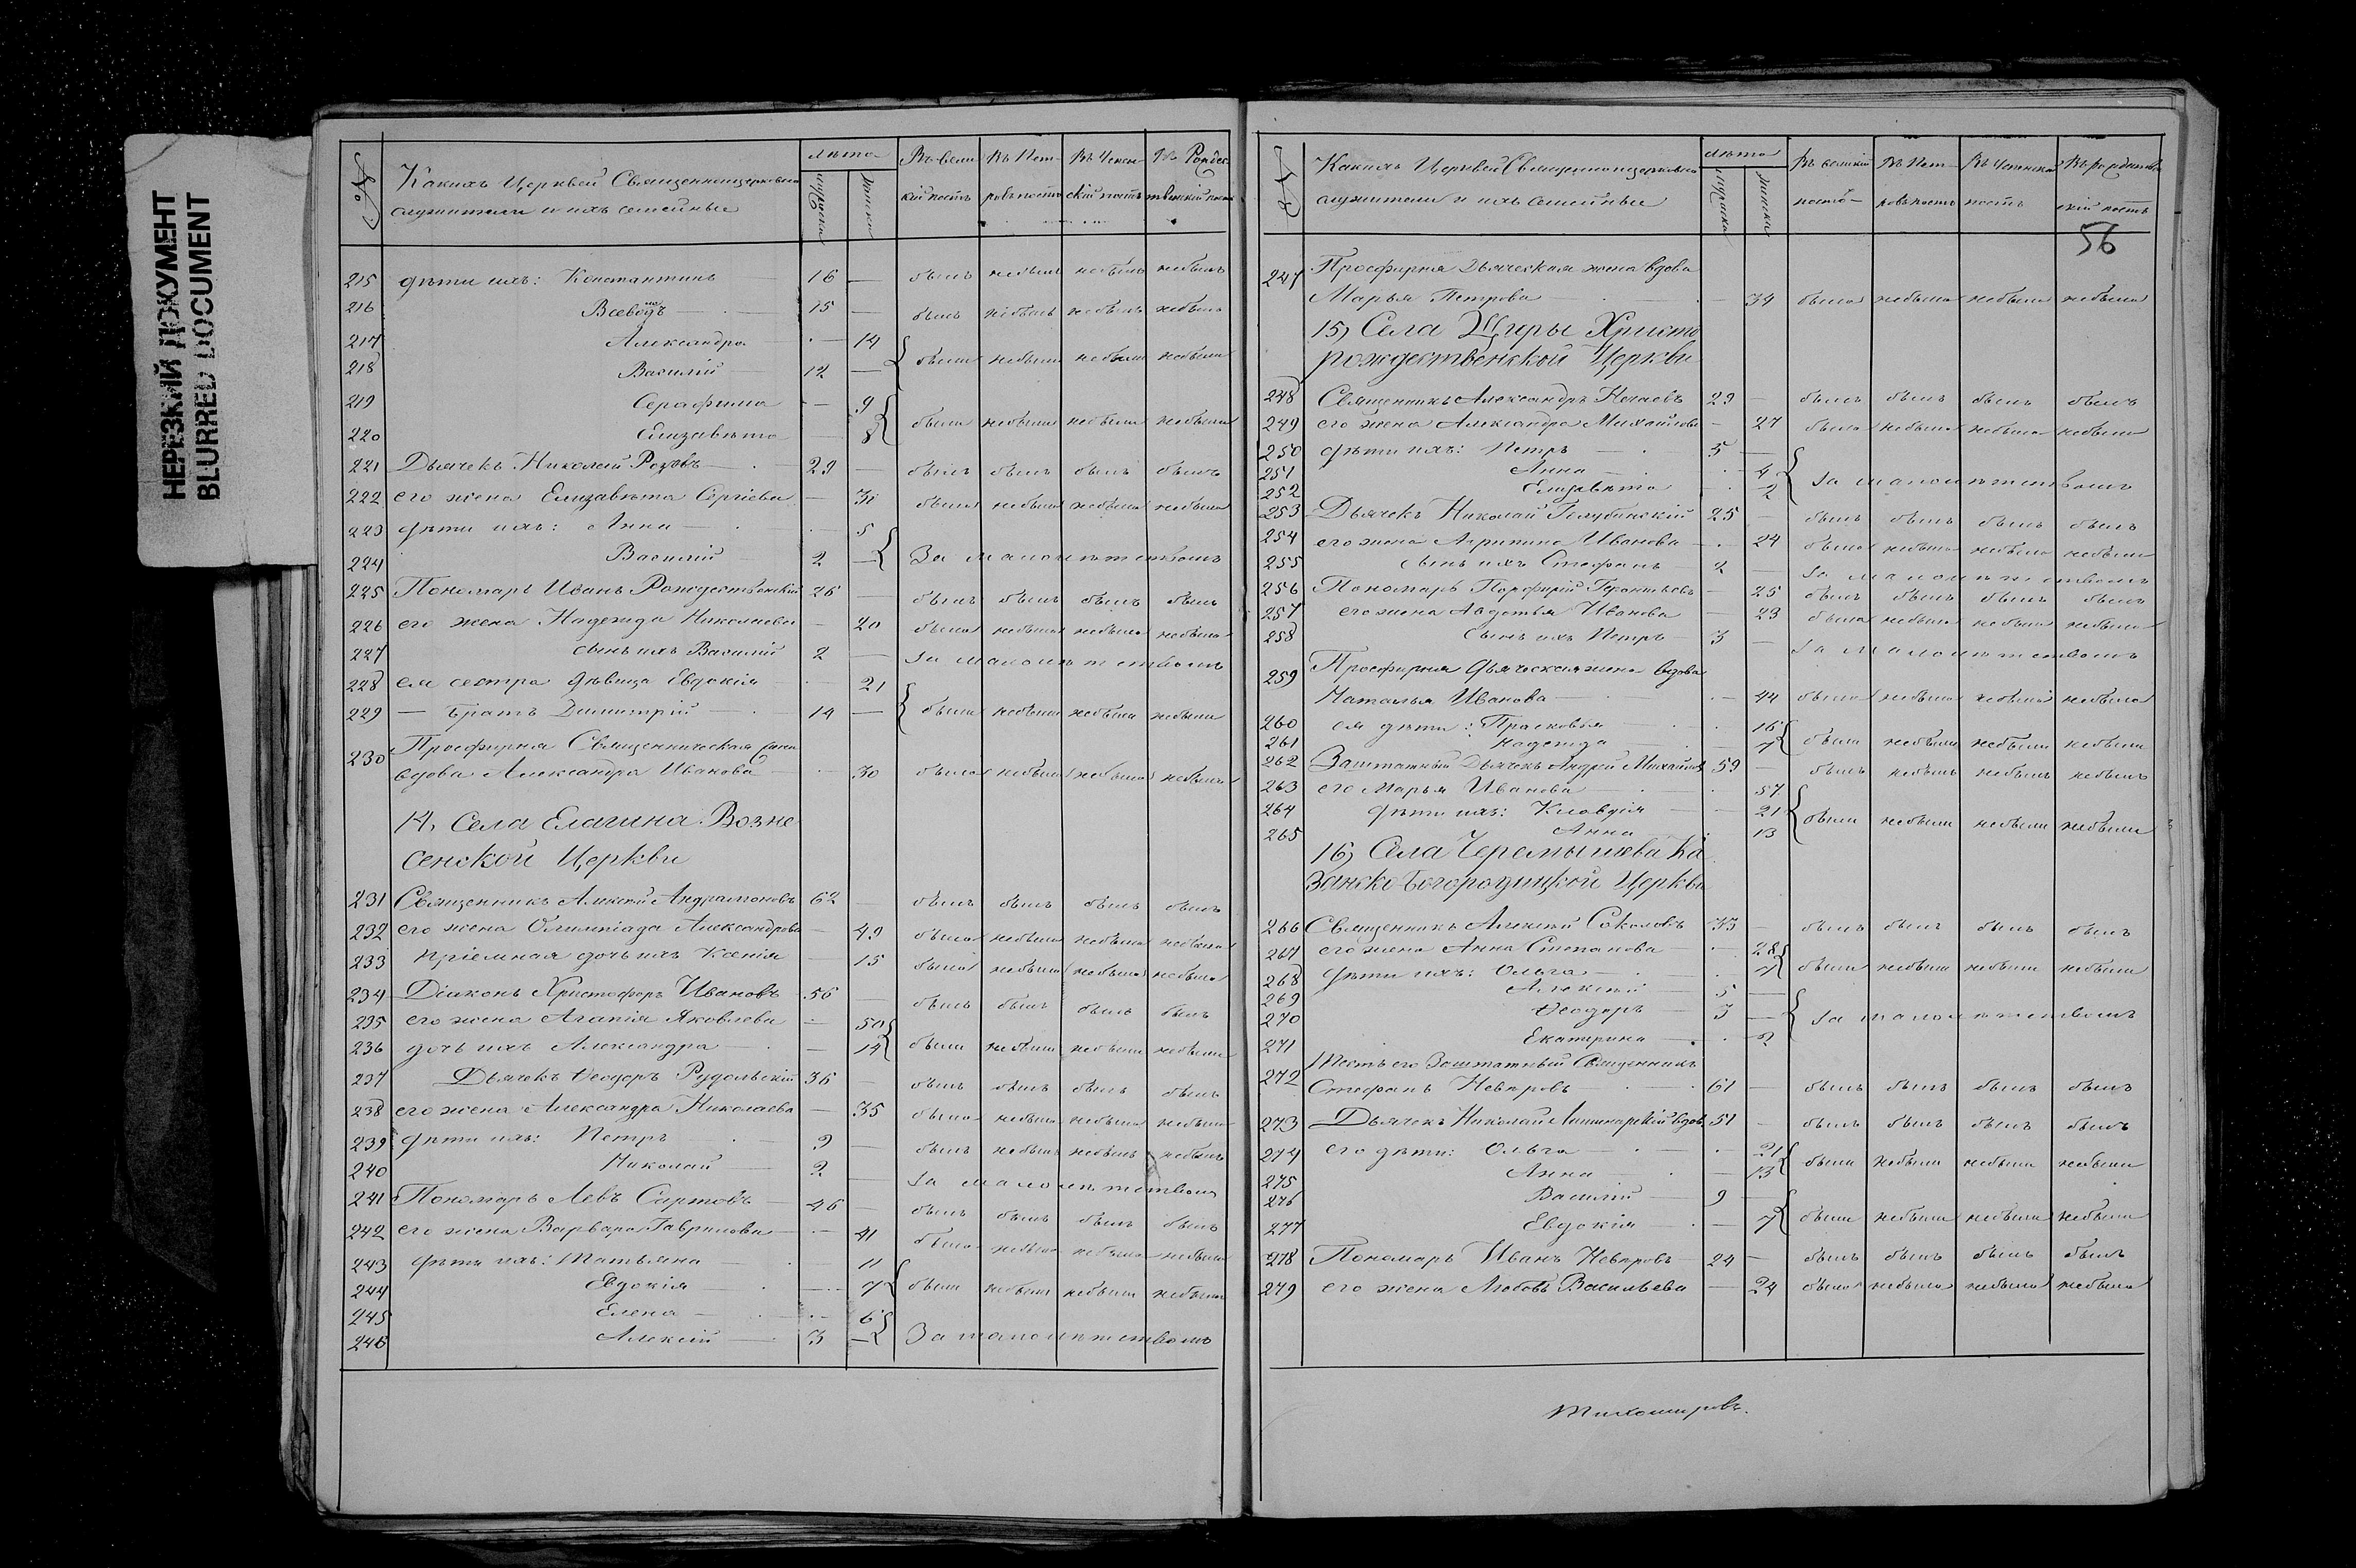 НЕРЕЗКИЙ ДОКУМЕНТ
BLURRED DOCUMENT
№ Какихъ Церквей Священноцерковно служители и ихъ семейные лѣта мужска женска Въ великій постъ Въ Петровъ постъ Въ Успенскій постъ Въ Рождественскій постъ
215 дѣти ихъ: Константинъ 16 — былъ небылъ небылъ небылъ
216 15 — былъ небылъ небылъ небылъ
217 Александра — 14
218 Василій 12 — были небыли небыли небыли
219 Серафима — 9
220 Елизавета — 8 были небыли небыли небыли
221 Дьячекъ Николай 29 — былъ былъ былъ былъ
222 его жена Елизавѣта Сергіева — 31 была небыла небыла небыла
223 дѣти ихъ: Анна — 5
224 Василій 2 — За малолѣтствомъ
225 Пономарь Иванъ Рождественскій 26 — былъ былъ былъ былъ
226 его жена Надежда Николаева — 20 была небыла небыла небыла
227 сынъ ихъ Василій 2 — За малолѣтствомъ
228 ея сестра дѣвица Евдокія — 21
229 — братъ Димитрій 14 — были небыли небыли небыли
230 Просфирня Священническая
вдова Александра Иванова — 30 была небыла небыла небыла
14, Села Елагина Возне
сенской Церкви
231 Священникъ Алексѣй 62 — былъ былъ былъ былъ
232 его жена Олимпіада Александрова — 49 была небыла небыла небыла
233 пріемная дочь ихъ Ксенія — 15 была небыла небыла небыла
234 Діаконъ Христофоръ Ивановъ 56 — былъ былъ былъ былъ
235 его жена Агапія Яковлева — 50
236 дочь ихъ Александра — 14 были небыли небыли небыли
237 Дьячекъ Ѳеодоръ Рудольскій 36 — былъ былъ былъ былъ
238 его жена Александра Николаева — 35 была небыла небыла небыла
239 дѣти ихъ: Петръ 9 — былъ небылъ небылъ небылъ
240 Николай 2 — За малолѣтствомъ
241 Пономарь Левъ Сартовъ 46 — былъ былъ былъ былъ
242 его жена Варвара Гаврилова — 41 была небыла небыла небыла
243 дѣти ихъ: Татьяна — 11
244 Евдокія — 7 были небыли небыли небыли
245 Елена — 6
246 Алексій 3 — За малолѣтствомъ
№ Какихъ Церквей Священноцерковно служители и ихъ семейные лѣта мужска женска Въ великій постъ Въ Петровъ постъ Въ Успенскій постъ Въ Рождественскій постъ
56
247 Просфирня Дьяческая жена вдова
Марья Петрова — 34 была небыла небыла небыла
15, Села Щиры Христо
рождественской Церкви
248 Священникъ Александръ Нечаевъ 29 — былъ былъ былъ былъ
249 его жена Александра Михайлова — 27 была небыла небыла небыла
250 дѣти ихъ: Петръ 5 —
251 Анна — 4
252 Елизавѣта — 2 За малолѣтствомъ
253 Дьячекъ Николай Голубинскій 25 — былъ былъ былъ былъ
254 его жена Агрипина Иванова — 24 была небыла небыла небыла
255 сынъ ихъ Стефанъ 2 — За малолѣтствомъ
256 Пономарь Порфирій Геронтьевъ — 25 былъ былъ былъ былъ
257 его жена Авдотья Иванова — 23 была небыла небыла небыла
258 сынъ ихъ Петръ 3 — За малолѣтствомъ
259 Просфирня Дьяческая жена вдова
Наталья Иванова — 44 была небыла небыла небыла
260 ея дѣти: Прасковья — 16
261 Надежда — 7 были небыли небыли небыли
262 Заштатный Дьячекъ Андрей Михайловъ 59 — былъ небылъ небылъ небылъ
263 его Марья Иванова — 57
264 дѣти ихъ: Клавдія — 21
265 Анна — 13 были небыли небыли небыли
16, Села Черемышева Ка
занско-Богородицкой Церкви
266 Священникъ Алексѣй Соколовъ 33 — былъ былъ былъ былъ
267 его жена Анна Степанова — 28
268 дѣти ихъ: Ольга — 7 были небыли небыли небыли
269 Алексѣй 5 —
270 Ѳеодоръ 3 —
271 Екатерина — 2 За малолѣтствомъ
272 Тесть его Заштатный Священникъ
Стефанъ Невзровъ 61 — былъ былъ былъ былъ
273 Дьячекъ Николай вдов 51 — былъ былъ былъ былъ
274 его дѣти: Ольга — 21
275 Анна — 13 были небыли небыли небыли
276 Василій 9 —
277 Евдокія — 7 были небыли небыли небыли
278 Пономарь Иванъ Невзровъ 24 — былъ былъ былъ былъ
279 его жена Любовь Васильева — 24 была небыла небыла небыла
Тихомировъ.